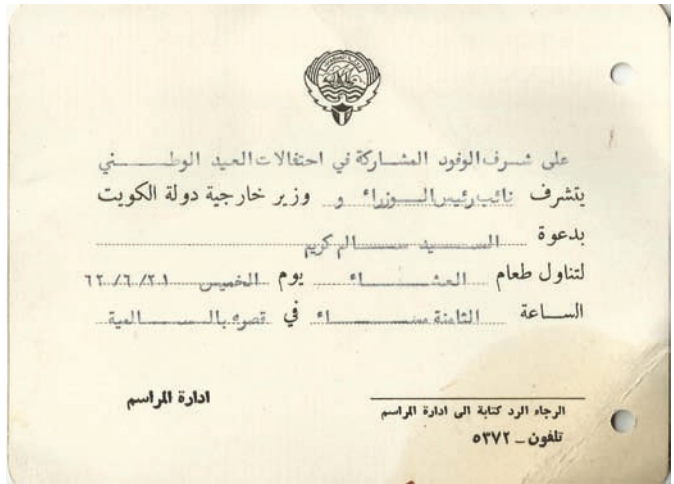 على شرف الوفود المشاركة في احتفالات العيد الوطني
يتشرف نائب رئيس الوزراء و وزير خارجية دولة الكويت
بدعوة السيد سالم كريم
لتناول طعام العشاء يوم الخميس ٦٢/٦/٢١
الساعة الثامنة مساء في قصره بالسالمية
ادارة المراسم
الرجاء الرد كتابة الى ادارة المراسم
تلفون ــ ٥٣٧٢